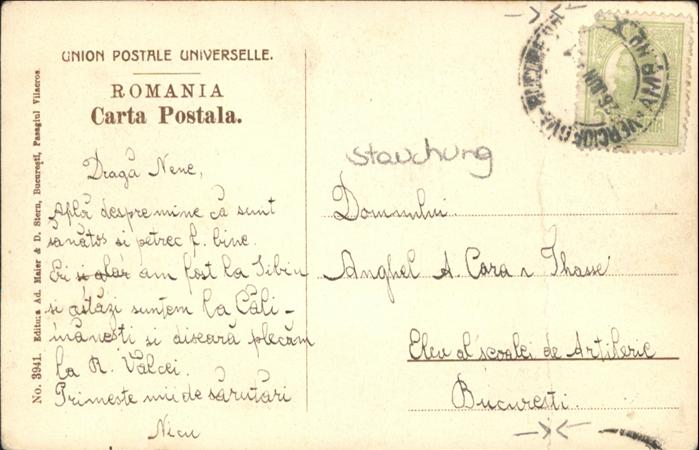 UNION POSTALE UNIVERSELLE.
ROMANIA
Carta Postala.
No. 3941. Editura Ad. Maier & D. Stern, Bucureşti, Pasagiul Vilacros
Dragă Nene,
Află despre mine că sunt
sănătos si petrec f. bine.
Eri am fost la Sibiu
si astăzi suntem la Căli-
mănești si diseară plecăm
la R. Vâlcei.
Primește mii de sărutări
Nicu
Stauchung
Domnului
Anghel A. Cara
Elev al școalei de Artilerie
București.